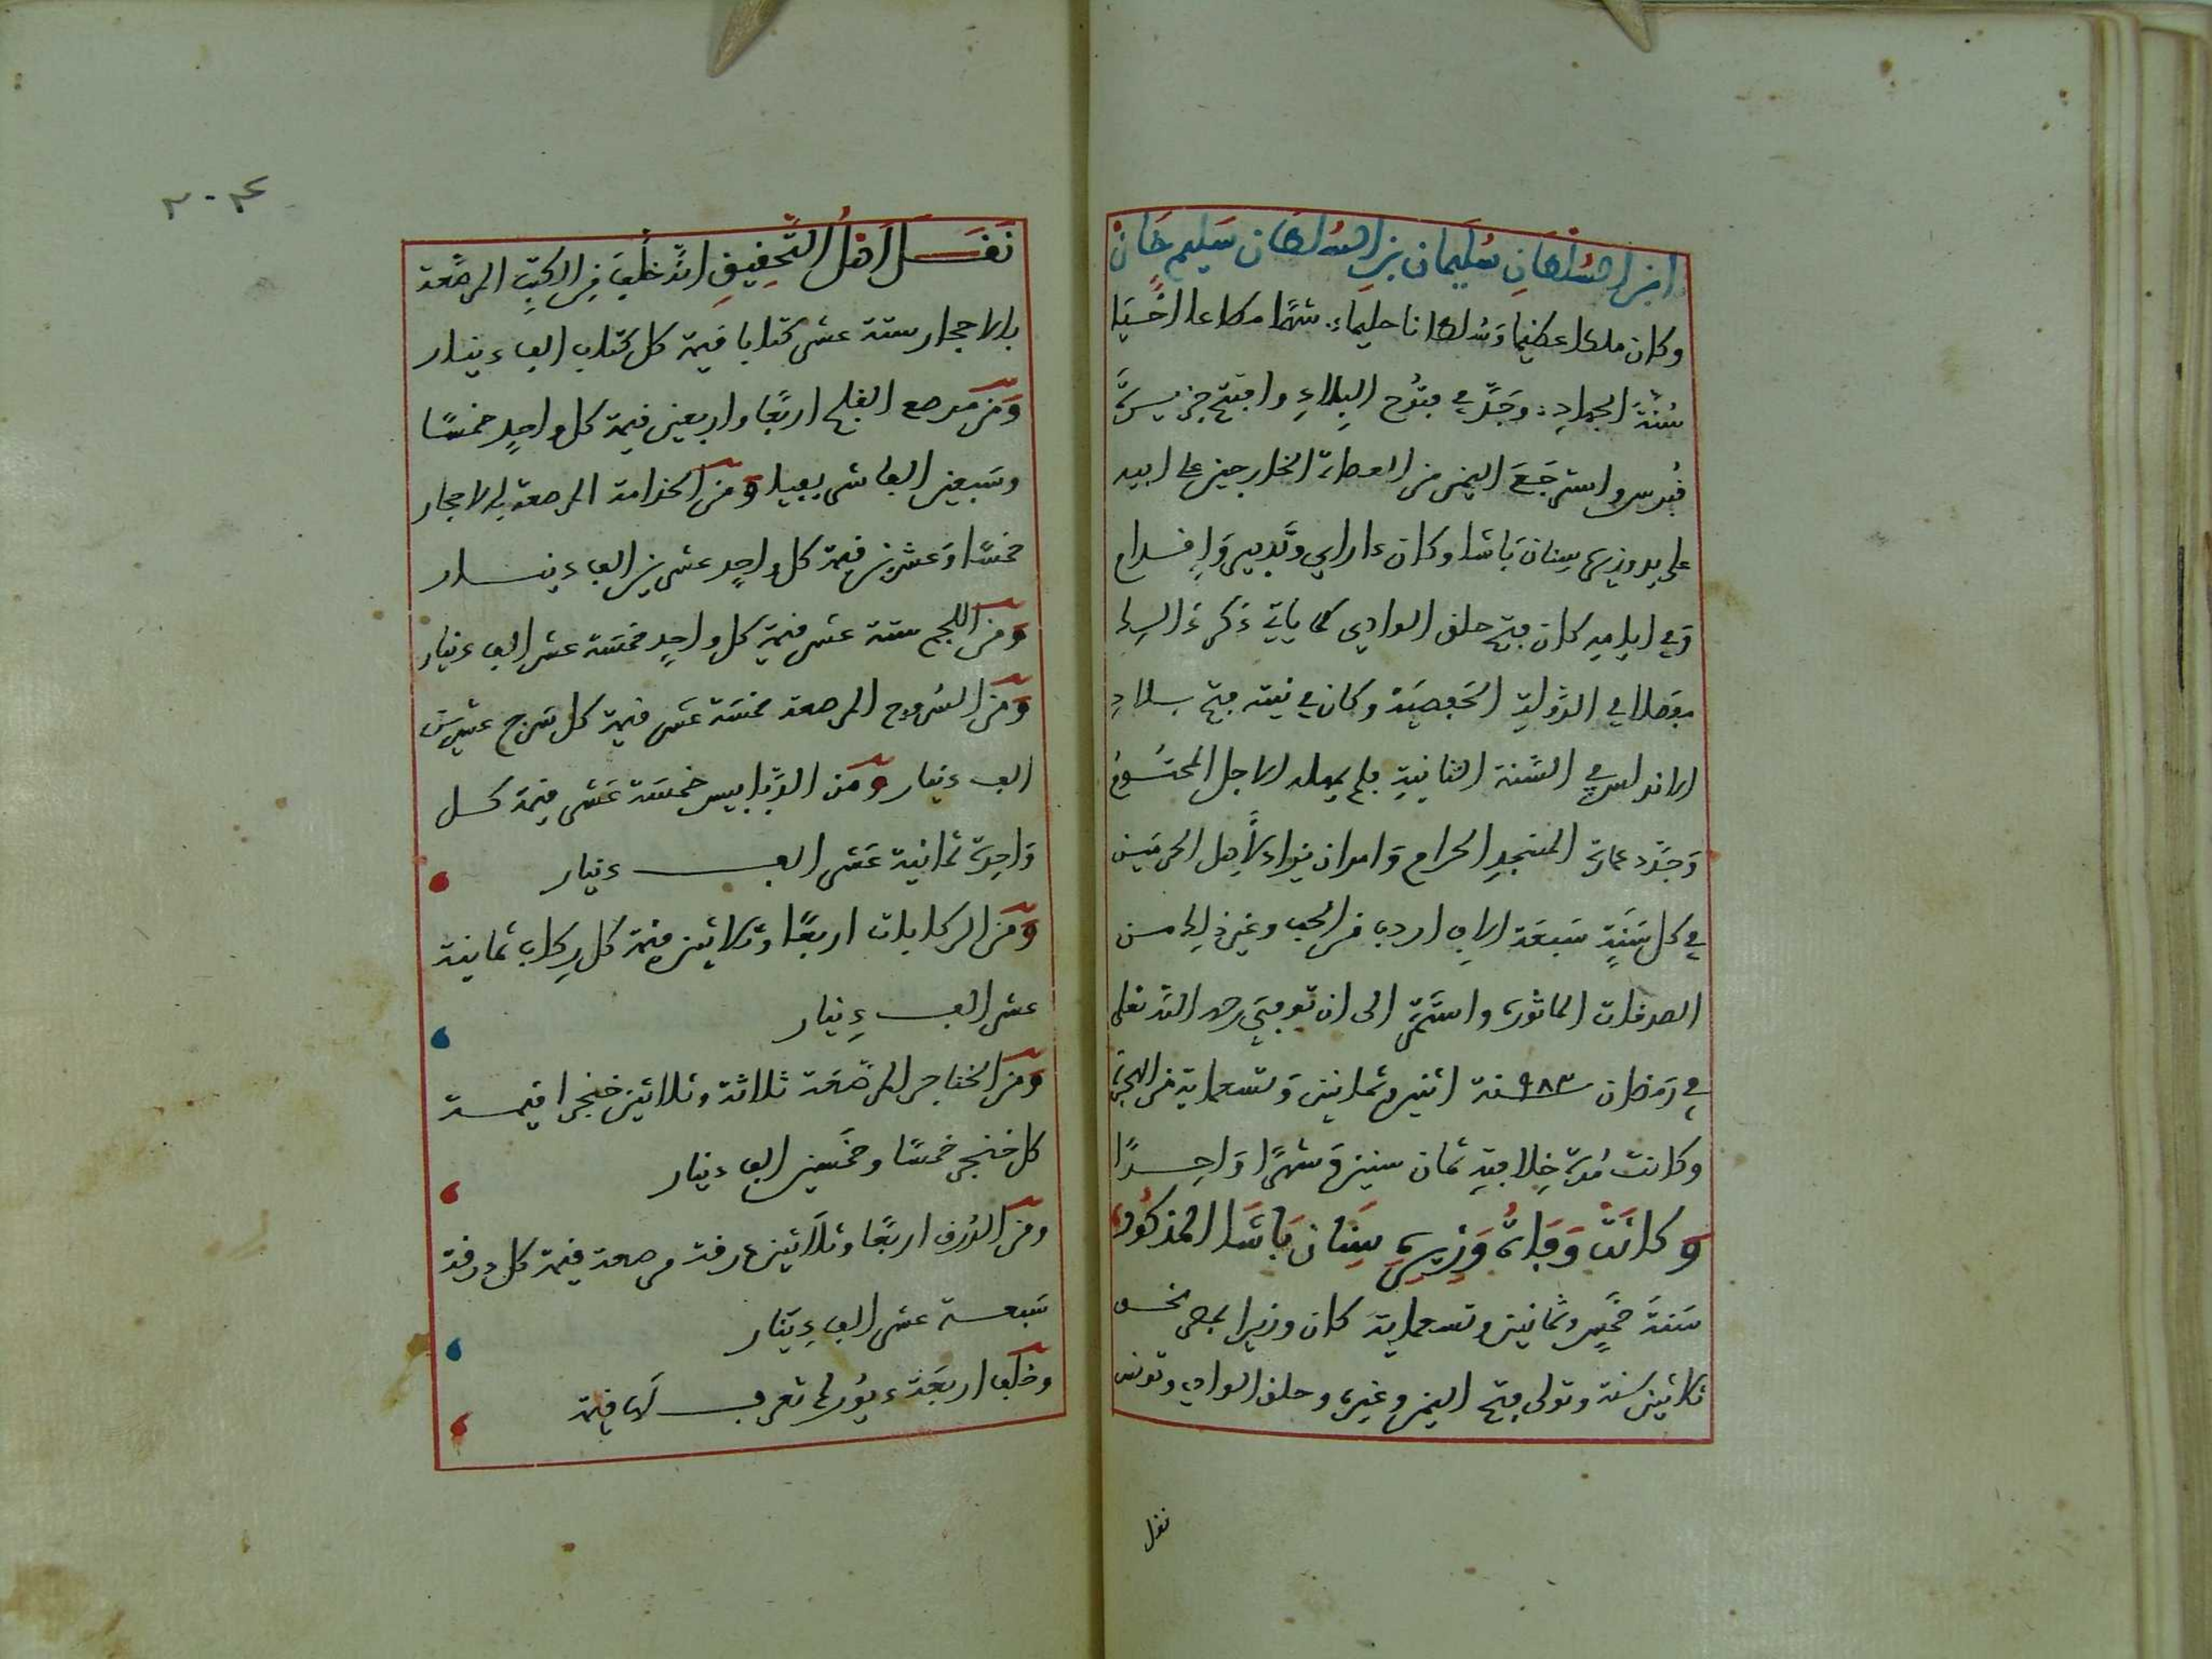 ابن السلطان سليمان بن السلطان سليم خان
وكان ملكا عظيما وسلطانا حليما شهما مطاعا احيا
سنة الجهاد وجد في فتوح البلاد وافتتح جزيرة
قبرس واسترجع اليمن من العصاة الخارجين على ابيه
على يد وزيره سنان باشا وكان ذا راي وتدبير وإقدام
وفي ايامه كان فتح حلق الوادي كما ياتي ذكر ذالك
مفصلا في الدولة الحفصية وكان في نيته فتح بلاد
الاندلس في السنة الثانية فلم يمهله الاجل المحتوم
وجدد عمارة المسجد الحرام وامر ان يزاد لأهل الحرمين
في كل سنة سبعة الاف اردب من الحب وغير ذلك من
الصدقات الماثورة واستمر الى ان توفي رحمه الله تعلى
في رمضان ٩٨٣ سنة اثنين وثمانين وتسعماية من الهجرة
وكانت مدة خلافته ثمان سنين وشهرا واحدا
وكانت وفاة وزيره سنان باشا المذكور
سنة خمس وثمانين وتسعماية كان وزيرا بمصر نحو
ثلاثين سنة وتولى فتح اليمن وغيره وحلق الوادي وتونس
نقل
٣٠٤
نقل اهل التحقيق انه خلف من الكتب المرصعة
بالاحجار ستة عشر كتابا قيمة كل كتاب الف دينار
ومن مرصع اربعا واربعين قيمة كل واحد خمسا
وسبعين الفا ومن المرصعة بالاحجار
خمسا وعشرين قيمة كل واحد عشرين الف دينار
ومن اللجم ستة عشر قيمة كل واحد خمسة عشر الف دينار
ومن السروج المرصعة خمسة عشر قيمة كل سرج عشرين
الف دينار ومن الدبابيس خمسة عشر قيمة كل
واحدة ثمانية عشر الف دينار
ومن الركابات اربعا وثلاثين قيمة كل ركاب ثمانية
عشر الف دينار
ومن الخناجر المرصعة ثلاثة وثلاثين خنجرا قيمة
كل خنجر خمسا وخمسين الف دينار
ومن الدرق اربعا وثلاثين درقة مرصعة قيمة كل درقة
سبعة عشر الف دينار
وخلف اربعة لم تعرف لها قيمة